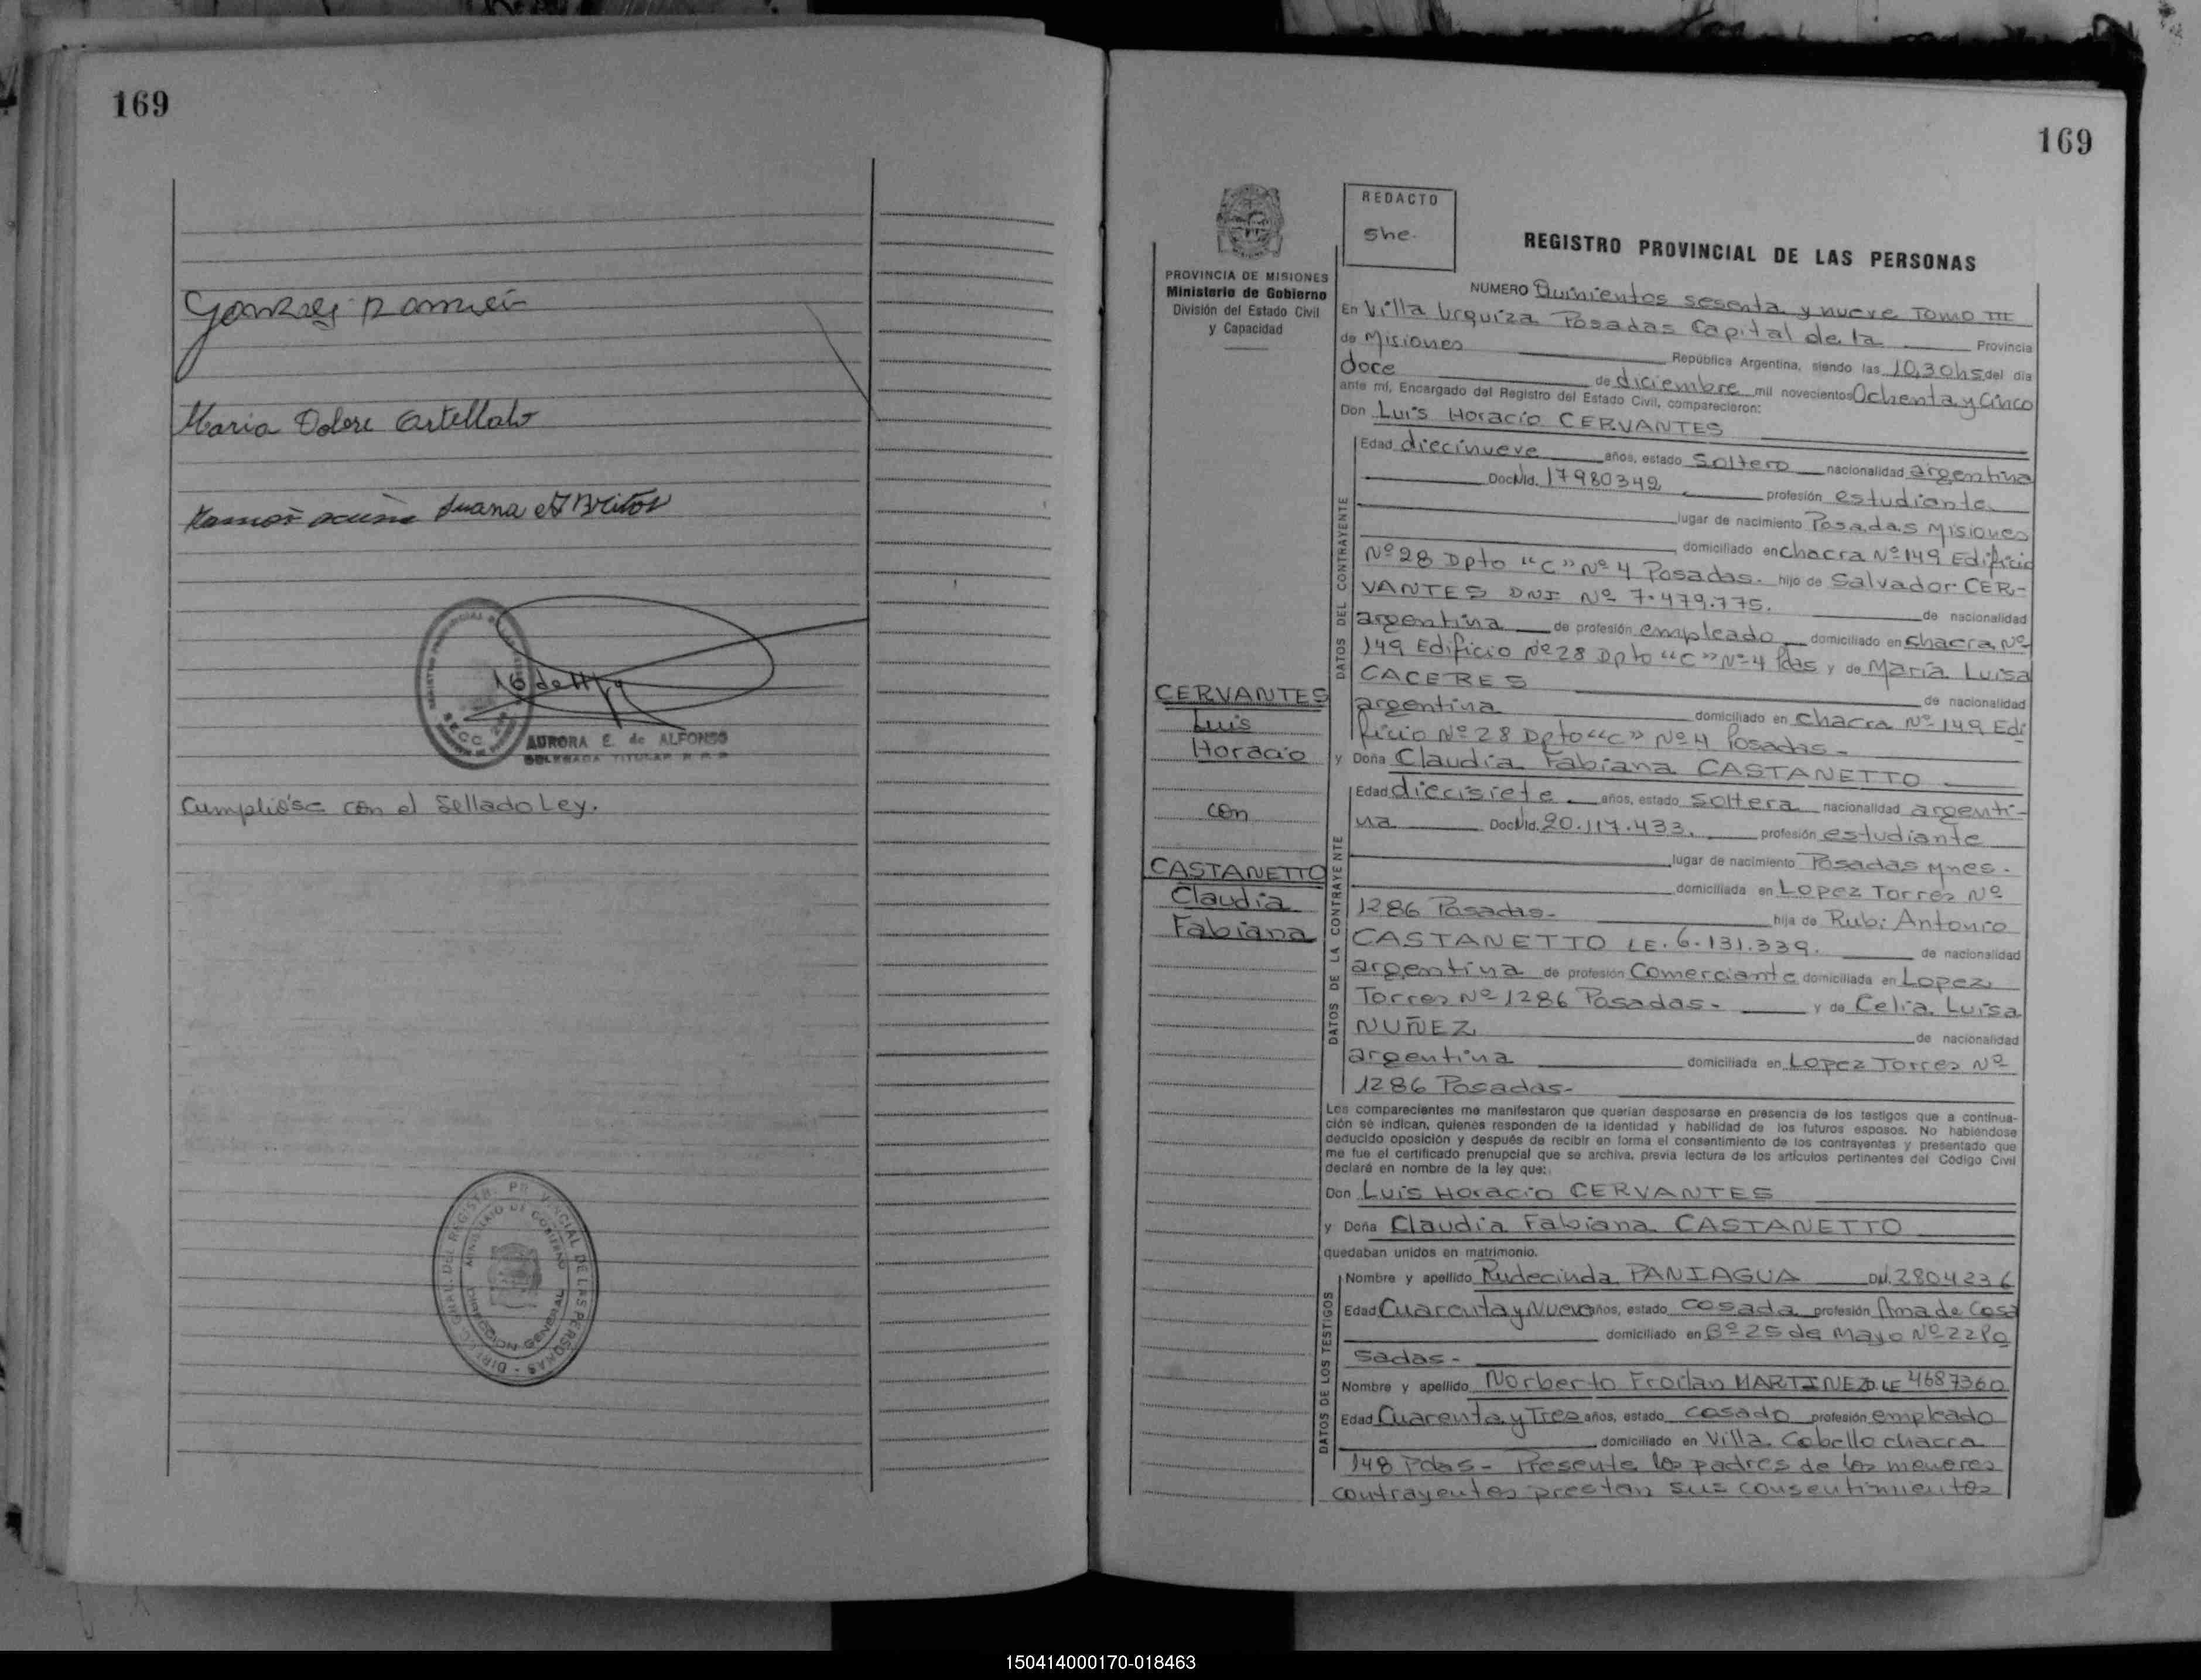 169
Maria Dolore
Juana
REGISTRO PROVINCIAL DE LAS PERSONAS
SECC. 2
16 de
AURORA E. de ALFONSO
DELEGADA TITULAR R P P
Cumplióse con el Sellado Ley.
DIREC. GRAL. DEL REGISTR. PROVINCIAL DE LAS PERSONAS
MINISTERIO DE GOBIERNO
DIRECCION GENERAL
169
PROVINCIA DE MISIONES
Ministerio de Gobierno
División del Estado Civil
y Capacidad
REDACTO
She.
REGISTRO PROVINCIAL DE LAS PERSONAS
CERVANTES
Luis
Horacio
con
CASTANETTO
Claudia
Fabiana
NUMERO Quinientos sesenta y nueve TOMO III
En Villa Urquiza Posadas Capital de la Provincia
de Misiones República Argentina, siendo las 10,30hs del día
doce de diciembre mil novecientos Ochenta y Cinco
ante mí, Encargado del Registro del Estado Civil, comparecieron:
Don Luis Horacio CERVANTES
DATOS DEL CONTRAYENTE
Edad diecinueve años, estado Soltero nacionalidad argentina
Doc Nid. 17980342 profesión estudiante
lugar de nacimiento Posadas Misiones
domiciliado en chacra Nº 149 Edificio
Nº 28 Dpto "C" Nº 4 Posadas. hijo de Salvador CER-
VANTES DNI Nº 7.479.775. de nacionalidad
argentina de profesión empleado domiciliado en chacra Nº
149 Edificio Nº 28 Dpto "C" Nº 4 Pdas y de María Luisa
CACERES de nacionalidad
argentina domiciliado en chacra Nº 149 Edi
ficio Nº 28 Dpto "C" Nº 4 Posadas -
y Doña Claudia Fabiana CASTANETTO
DATOS DE LA CONTRAYENTE
Edad diecisiete años, estado Soltera nacionalidad argenti-
na Doc Nid. 20.117.433. profesión estudiante
lugar de nacimiento Posadas Mnes.
domiciliada en Lopez Torres Nº
1286 Posadas- hija de Rubi Antonio
CASTANETTO LE. 6.131.339. de nacionalidad
argentina de profesión Comerciante domiciliada en Lopez
Torres Nº 1286 Posadas- y de Celia Luisa
NUÑEZ de nacionalidad
argentina domiciliada en Lopez Torres Nº
1286 Posadas-
Los comparecientes me manifestaron que querían desposarse en presencia de los testigos que a continua-
ción se indican, quienes responden de la identidad y habilidad de los futuros esposos. No habiéndose
deducido oposición y después de recibir en forma el consentimiento de los contrayentes y presentado que
me fue el certificado prenupcial que se archiva, previa lectura de los artículos pertinentes del Código Civil
declaré en nombre de la ley que:
Don Luis Horacio CERVANTES
y Doña Claudia Fabiana CASTANETTO
quedaban unidos en matrimonio.
DATOS DE LOS TESTIGOS
Nombre y apellido Rudecinda PANIAGUA DNI. 2804236
Edad Cuarenta y Nueve años, estado casada profesión Ama de Casa
domiciliado en Bº 25 de Mayo Nº 22 Po
sadas-
Nombre y apellido Norberto Froilan MARTINEZ D. LE 4687360
Edad Cuarenta y Tres años, estado casado profesión empleado
domiciliado en Villa Cabello chacra
148 Pdas- Presente los padres de los menores
contrayentes prestan sus consentimientos
150414000170-018463